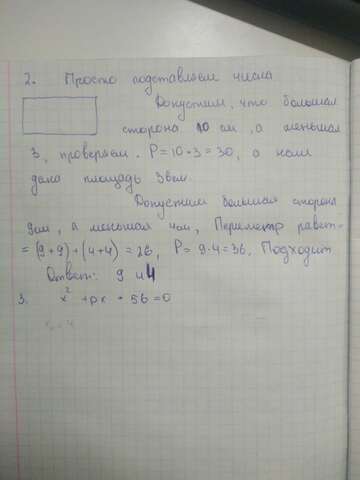 2. Просто подставляем числа
Допустим, что большая
сторона 10 см, а меньшая
3, проверяем. P=10·3=30, а нам
дана площадь 36см.
Допустим большая сторона
9см, а меньшая 4см, Периметр равен=
=(9+9)+(4+4)=26, P=9·4=36, Подходит
Ответ: 9 и 4
3. x² +px + 56=0